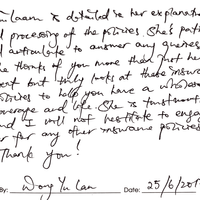 is detailed in her explanation
d processing of the policies. She's pati
d articulate to answer any queries
the thinks of you more than just her
but truly looks at these insura
policies to help you have a wholesom
overage and life. She is trustworth
and I will not hesitate to engag
er for any other insurance policies
Thank you!
By: Wong Yu Lan Date: 25/6/201